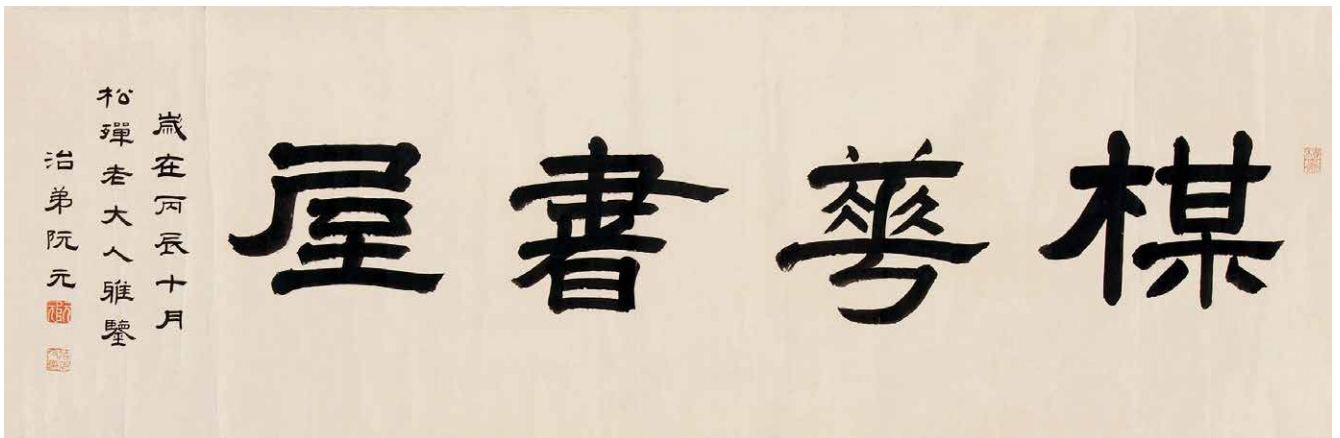 楳華書屋
歲在丙辰十月
松禪老大人雅鑒
治弟阮元